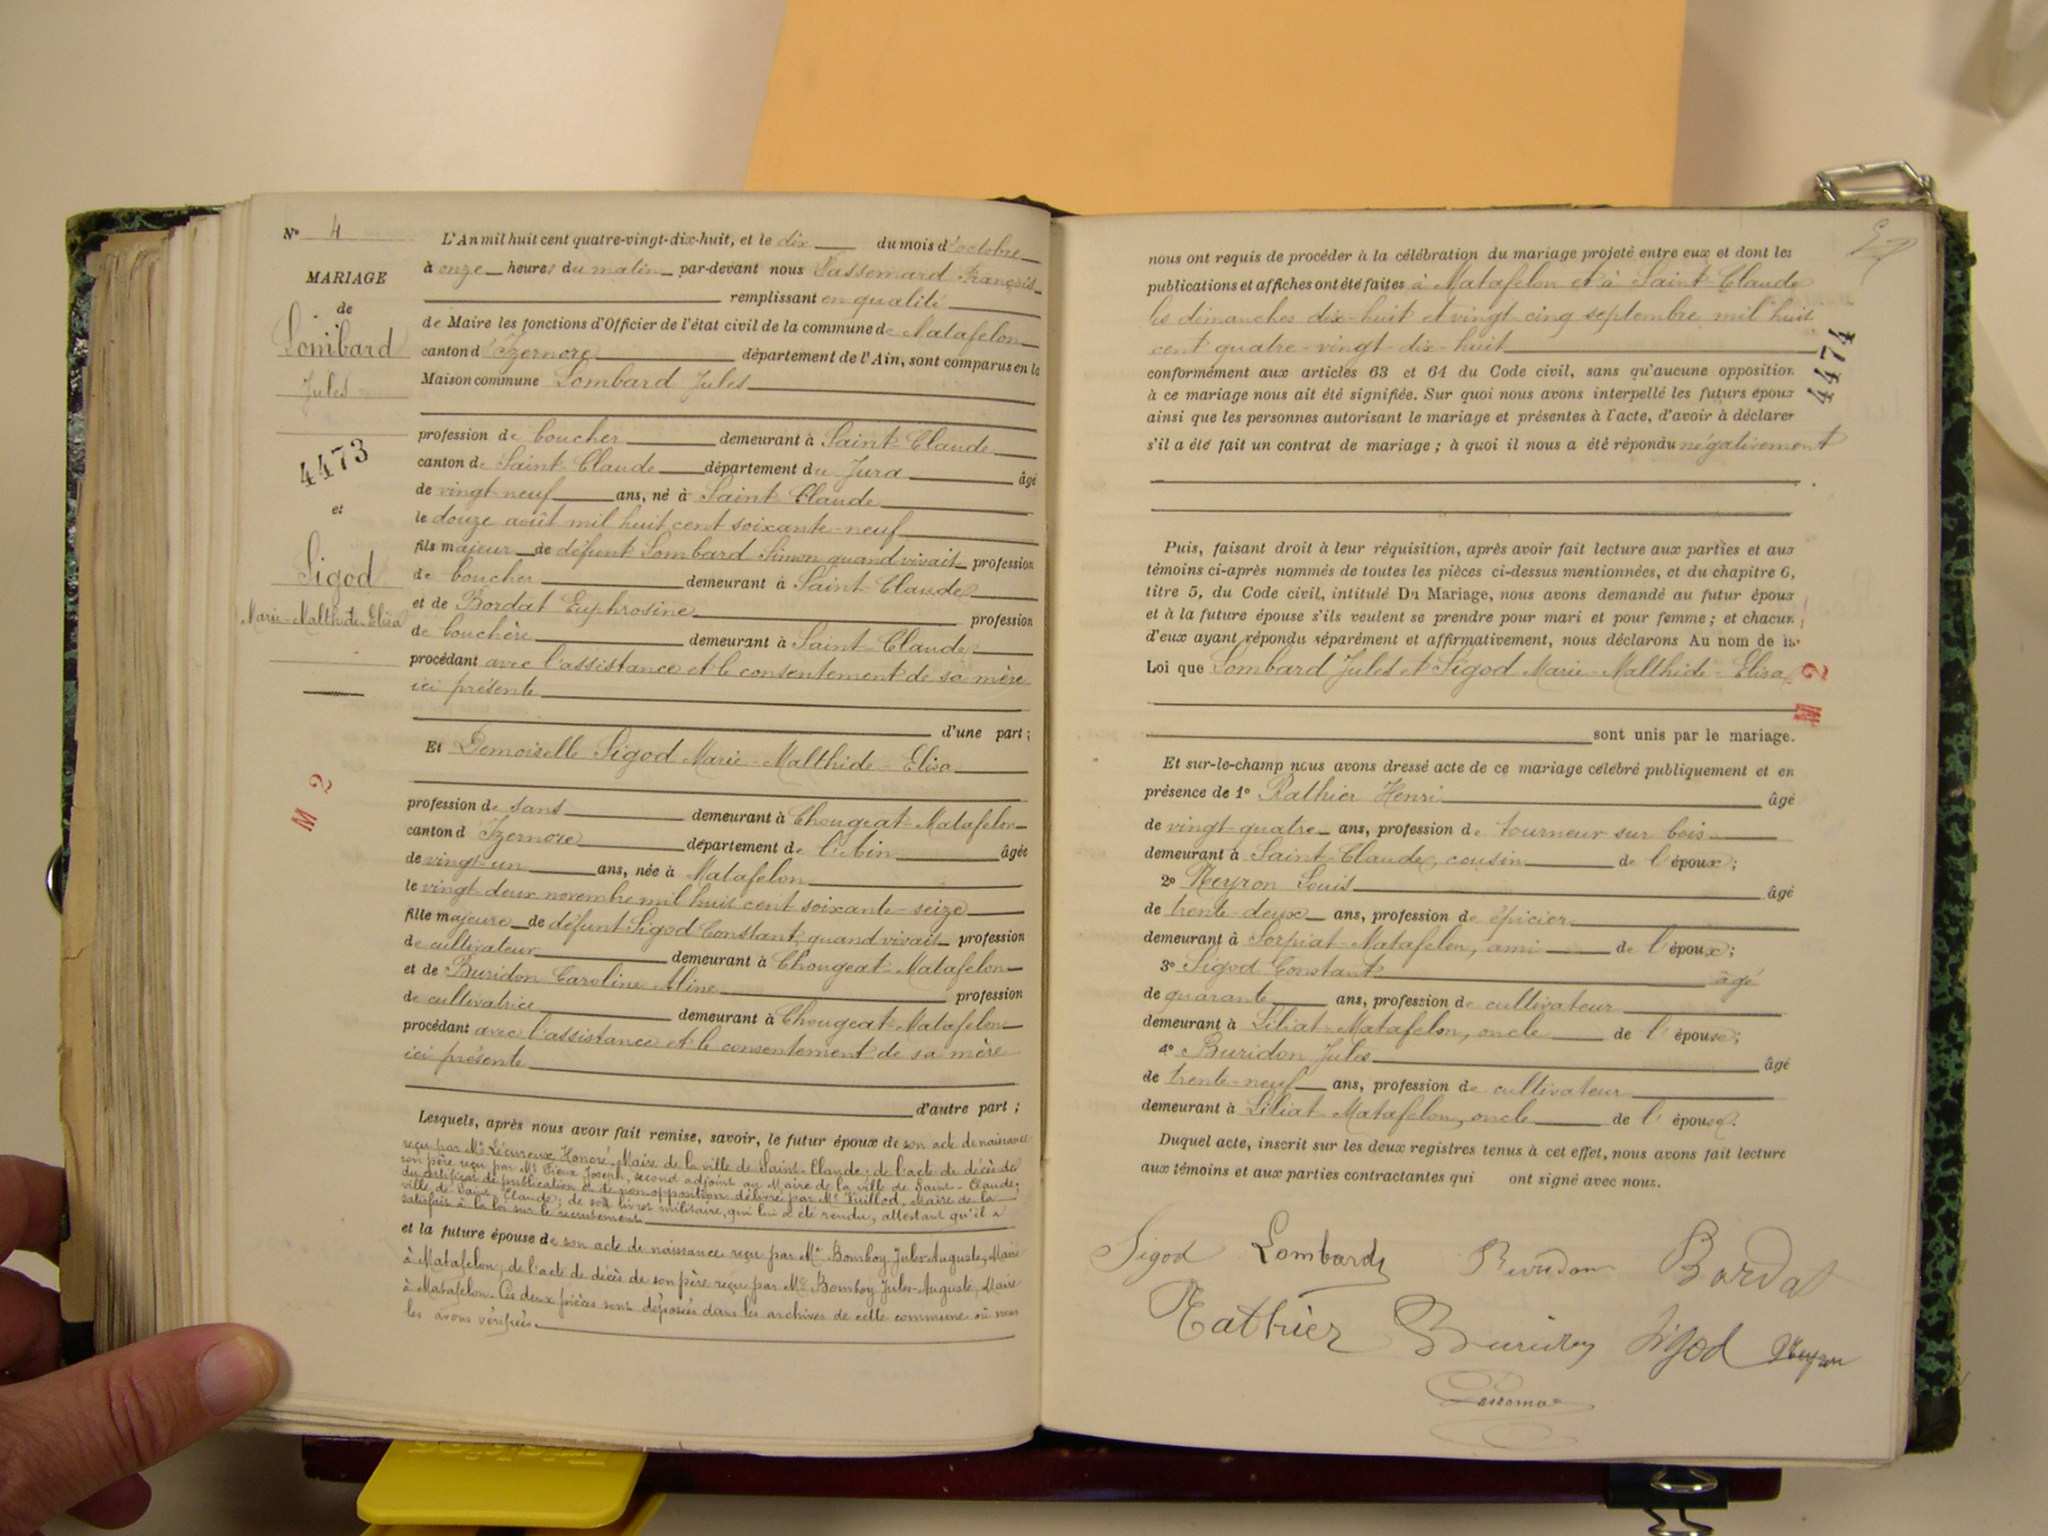 N° 4
MARIAGE
de
Lombard
Jules
4473
et
Sigod
Marie-Malthide-Elisa
M 2
L'An mil huit cent quatre-vingt-dix-huit, et le dix du mois d'octobre
à onze heures du matin par-devant nous Tassomard François
remplissant en qualité
de Maire les fonctions d'Officier de l'état civil de la commune de Matafelon
canton d'Izernore département de l'Ain, sont comparus en la
Maison commune Lombard Jules
profession de boucher demeurant à Saint-Claude
canton de Saint-Claude département du Jura âgé
de vingt-neuf ans, né à Saint Claude
le douze août mil huit cent soixante-neuf
fils majeur de défunt Lombard Simon quand vivait profession
de boucher demeurant à Saint-Claude
et de Bordat Euphrosine profession
de bouchère demeurant à Saint-Claude
procédant avec l'assistance et le consentement de sa mère
ici présente
d'une part;
Et Demoiselle Sigod Marie-Malthide-Elisa
profession de sans demeurant à Chougeat-Matafelon
canton d'Izernore département de l'Ain âgée
de vingt-un ans, née à Matafelon
le vingt-deux novembre mil huit cent soixante-seize
fille majeure de défunt Sigod Constant quand vivait profession
de cultivateur demeurant à Chougeat-Matafelon
et de Buridon Caroline Aline profession
de cultivatrice demeurant à Chougeat-Matafelon
procédant avec l'assistance et le consentement de sa mère
ici présente
d'autre part;
Lesquels, après nous avoir fait remise, savoir, le futur époux de son acte de naissance
reçu par Mr Lécureux Honoré, Maire de la ville de Saint-Claude; de l'acte de décès de
son père reçu par Mr Joseph, second adjoint au Maire de la ville de Saint-Claude;
du certificat de publication et de non opposition délivré par Mr Vuillod, Maire de la
ville de Saint-Claude; de son livret militaire, qui lui a été rendu, attestant qu'il a
satisfait à la loi sur le recrutement
et la future épouse de son acte de naissance reçu par Mr Bomboy Jules-Auguste, Maire
à Matafelon; de l'acte de décès de son père reçu par Mr Bomboy Jules-Auguste, Maire
à Matafelon. Ces deux pièces sont déposées dans les archives de cette commune où nous
les avons vérifiées.
nous ont requis de procéder à la célébration du mariage projeté entre eux et dont les
publications et affiches ont été faites à Matafelon et à Saint-Claude
les dimanches dix-huit et vingt-cinq septembre mil huit
cent quatre-vingt-dix-huit
4474
conformément aux articles 63 et 64 du Code civil, sans qu'aucune opposition
à ce mariage nous ait été signifiée. Sur quoi nous avons interpellé les futurs époux
ainsi que les personnes autorisant le mariage et présentes à l'acte, d'avoir à déclarer
s'il a été fait un contrat de mariage; à quoi il nous a été répondu négativement
Puis, faisant droit à leur réquisition, après avoir fait lecture aux parties et aux
témoins ci-après nommés de toutes les pièces ci-dessus mentionnées, et du chapitre 6,
titre 5, du Code civil, intitulé Du Mariage, nous avons demandé au futur époux
et à la future épouse s'ils veulent se prendre pour mari et pour femme; et chacun
d'eux ayant répondu séparément et affirmativement, nous déclarons Au nom de la
Loi que Lombard Jules et Sigod Marie-Malthide-Elisa
M 2
sont unis par le mariage.
Et sur-le-champ nous avons dressé acte de ce mariage célébré publiquement et en
présence de 1° Rathier Henri âgé
de vingt-quatre ans, profession de tourneur sur bois
demeurant à Saint-Claude, cousin de l'époux;
2° Neyron Louis âgé
de trente-deux ans, profession de épicier
demeurant à Sorpiat-Matafelon, ami de l'époux;
3° Sigod Constant âgé
de quarante ans, profession de cultivateur
demeurant à Siliat-Matafelon, oncle de l'épouse;
4° Buridon Jules âgé
de trente-neuf ans, profession de cultivateur
demeurant à Siliat Matafelon, oncle de l'épouse.
Duquel acte, inscrit sur les deux registres tenus à cet effet, nous avons fait lecture
aux témoins et aux parties contractantes qui ont signé avec nous.
Sigod Lombard Buridon Bordat
Rathier Buridon Sigod Neyron